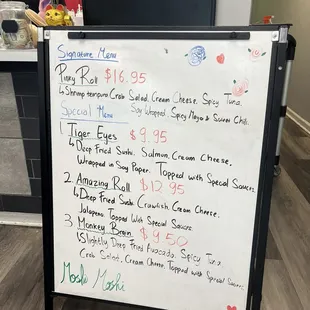 Signature Menu
Pinky Roll $16.95
↳ Shrimp tempura Crab Salad. Cream Cheese. Spicy Tuna.
Soy Wrapped. Spicy Mayo & Sweet Chili.
Special Menu
1. Tiger Eyes $9.95
↳ Deep Fried Sushi. Salmon. Cream Cheese.
Wrapped in Soy Paper. Topped with Special Sauces.
2. Amazing Roll $12.95
↳ Deep Fried Sushi Crawfish Cream Cheese.
Jalapeno. Topped With Special Sauces.
3. Monkey Brain $9.50
↳ Slightly Deep Fried Avocado. Spicy Tuna
Crab Salad. Cream Cheese. Topped with Special Sauces.
Moshi Moshi